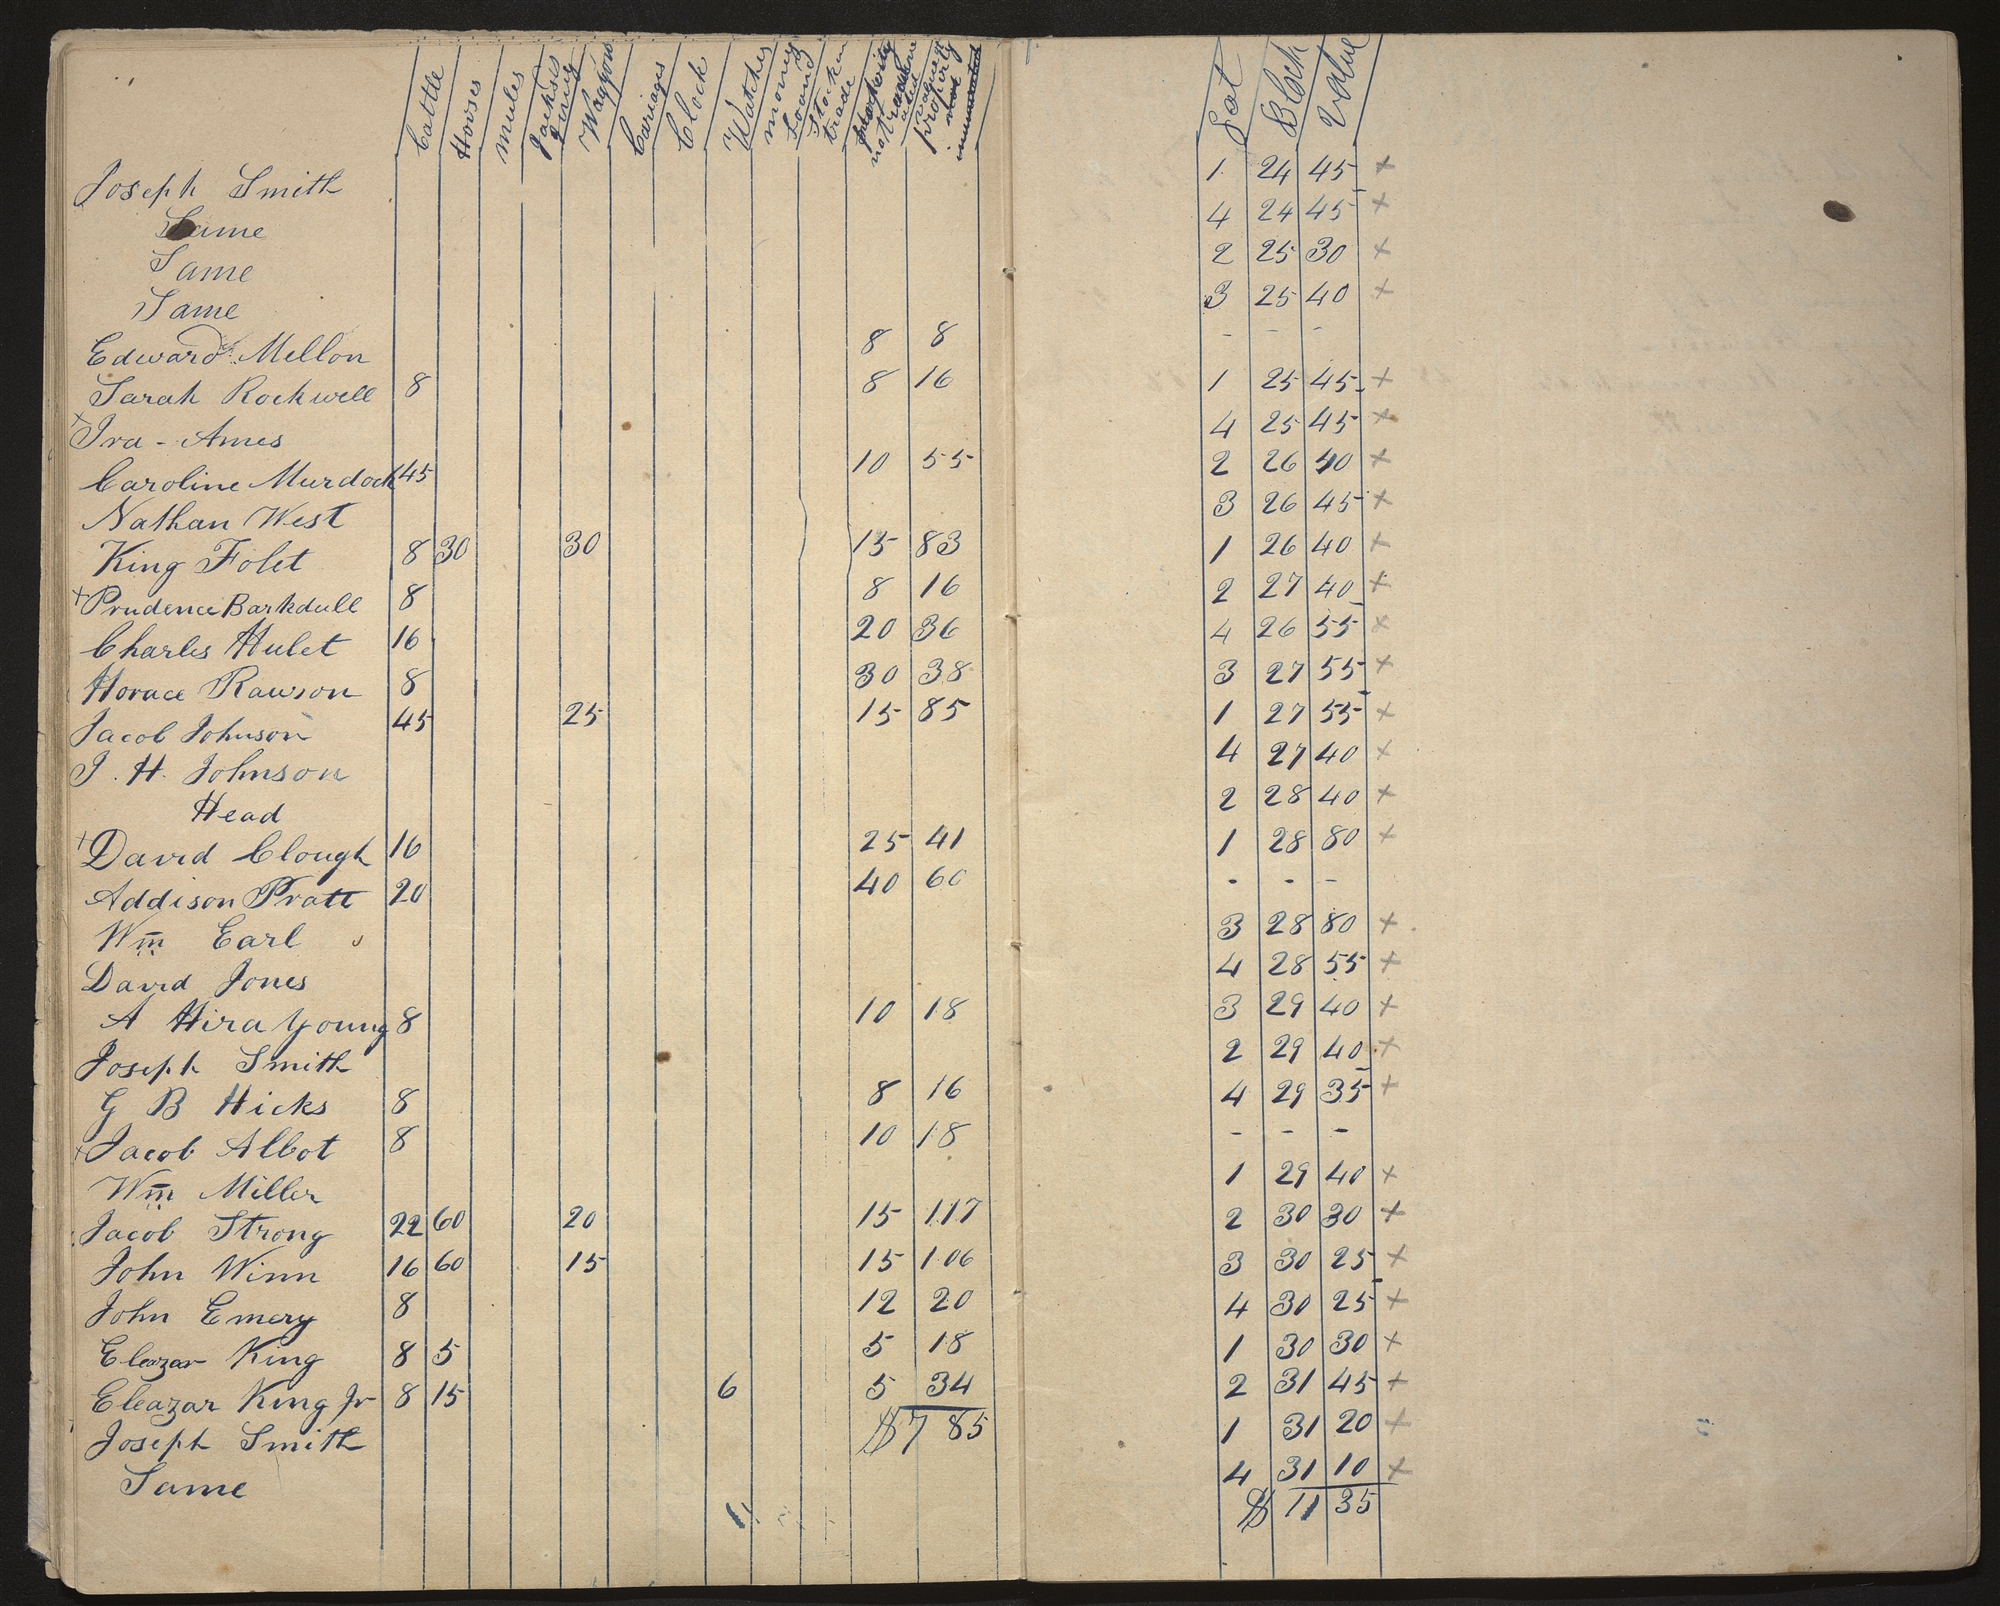 Cattle Horses Mules Jacks & Wagons Cariages Clock Watches money Loand Stock in trade value of property not Lot Block Value
Joseph Smith 1 24 45 +
Same 4 24 45 +
Same 2 25 30 +
Same 3 25 40 +
Edward Mellon 8 8 - - -
Sarah Rockwell 8 8 16 1 25 45 +
+ Ira - Ames 4 25 45 +
Caroline Murdock 45 10 55 2 26 40 +
Nathan West 3 26 45 +
King Folet 8 30 30 15 83 1 26 40 +
+ Prudence Barkdull 8 8 16 2 27 40 +
Charles Hulet 16 20 36 4 26 55 +
Horace Rawson 8 30 38 3 27 55 +
Jacob Johnson 45 25 15 85 1 27 55 +
J. H. Johnson 4 27 40 +
Head 2 28 40 +
+ David Clough 16 25 41 1 28 80 +
Addison Pratt 20 40 60 - - -
Wm Earl 3 28 80 +
David Jones 4 28 55 +
A Hira Young 8 10 18 3 29 40 +
Joseph Smith 2 29 40 +
G B Hicks 8 8 16 4 29 35 +
+ Jacob Albot 8 10 18 - - -
Wm Miller 1 29 40 +
Jacob Strong 22 60 20 15 117 2 30 30 +
John Winn 16 60 15 15 106 3 30 25 +
John Emery 8 12 20 4 30 25 +
Eleazar King 8 5 5 18 1 30 30 +
Eleazar King Jr 8 15 6 5 34 2 31 45 +
Joseph Smith 1 31 20 +
Same 4 31 10 +
$785
$1135